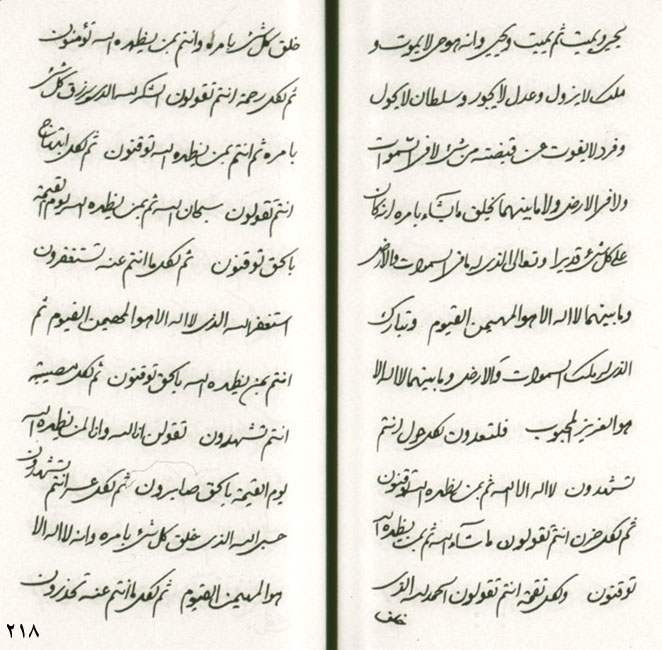 يحيي ويميت ثم يميت ويحيي وانه هو حي لا يموت و
ملك لا يزول وعدل لا يجور وسلطان لا يحول
وفرد لا يفوت عن قبضته من شيء لا في السموات
ولا في الارض ولا ما بينهما يخلق ما يشاء بامره انه كان
على كل شيء قديرا وتعالى الذي له ما في السموات والارض
وما بينهما لا اله الا هو المهيمن القيوم وتبارك
الذي له ملك السموات والارض وما بينهما لا اله الا
هو العزيز المحبوب فلتعدون لكل هول انتم
تشهدون لا اله الا الله ثم بمن يظهره الله توقنون
ثم لكل حزن انتم لتقولون ما شاء الله ثم بمن يظهره الله
توقنون ولكل نقمة انتم تقولون الحمد لله الذي
خلق
خلق كل شيء بامره وانتم بمن يظهره الله تؤمنون
ثم لكل رحمة انتم تقولون الشكر لله الذي يرزق كل شيء
بامره ثم انتم بمن يظهره الله توقنون ثم لكل ابتهاج
انتم تقولون سبحان الله ثم بمن يظهره الله يوم القيمة
بالحق توقنون ثم لكل ما انتم عنه تستغفرون
استغفر الله الذي لا اله الا هو المهيمن القيوم ثم
انتم بمن يظهره الله بالحق توقنون ثم لكل مصيبة
انتم تشهدون تقولن انا لله وانا لمن يظهره الله
يوم القيمة بالحق صابرون ثم لكل عسر انتم تشهدون
حسبي الله الذي خلق كل شيء بامره وانه لا اله الا
هو المهيمن القيوم ثم لكل ما انتم عنه تحذرون
٢١٨